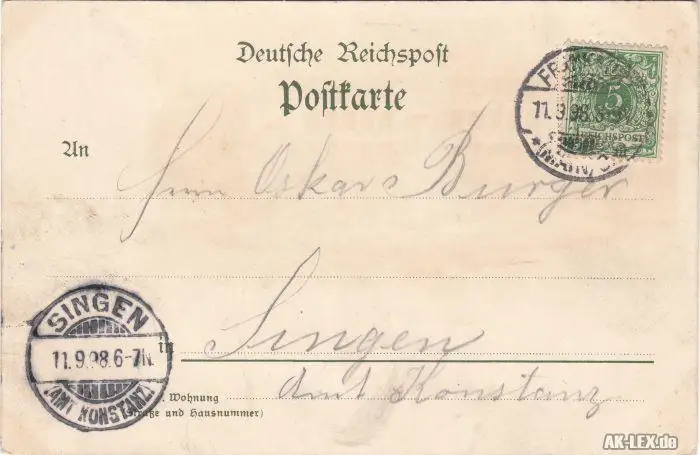 Deutsche Reichspost
Postkarte
11.9.98
5
REICHSPOST
(MAIN)
An
Herrn Oskar Burger
SINGEN
11.9.98.6-7N.
(AMT KONSTANZ)
in
Singen
Amt Konstanz
Wohnung
(Straße und Hausnummer)
AK-LEX.de